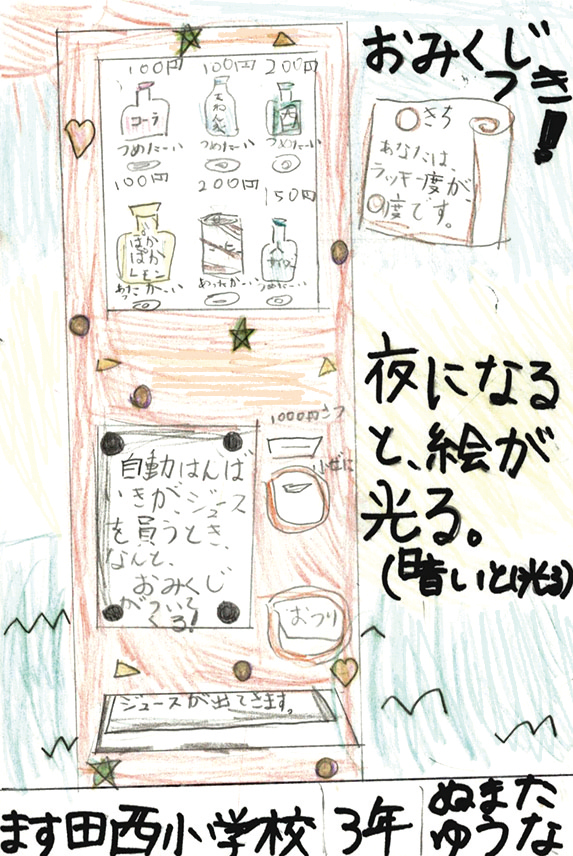 おみくじ
つき!
〇きち
あなたは、
ラッキー度が、
〇度です。
100円 100円 200円
コーラ
つめたーい つめたーい つめたーい
100円 200円 150円
ぽか
ぽか
レモン
あたたかーい つめたーい
夜になる
と、絵が
光る。
(暗いとき光る)
1000円さつ
小ぜに
自動はんば
いきが、ジュース
を買うとき、
なんと、
おみくじ
がついて
くる!
おつり
ジュースが出てきます。
ます田西小学校 3年 ぬまた
ゆうな